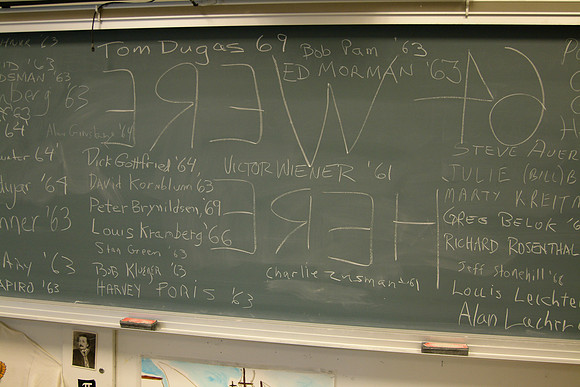 '63
'63
DSMAN '63
'63
'63
'64
64'
'64
'63
'63
APIRO '63
TOM DUGAS 69
Bob Pam '63
ED MORMAN '63
64 WERE
HERE
'64
DICK Gottfried '64
DAVID Kornblum '63
Peter Brynildsen, '69
Louis Kramberg '66
Stan Green '63
BOB Klueger '63
HARVEY PORIS '63
VICTOR WIENER '61
Charlie Zusman '61
STEVE AUER
JULIE (BILL) B
MARTY KREITM
GREG BELOK '6
RICHARD ROSENTHAL
Jeff Stonehill '66
Louis Leichte
Alan Lachr